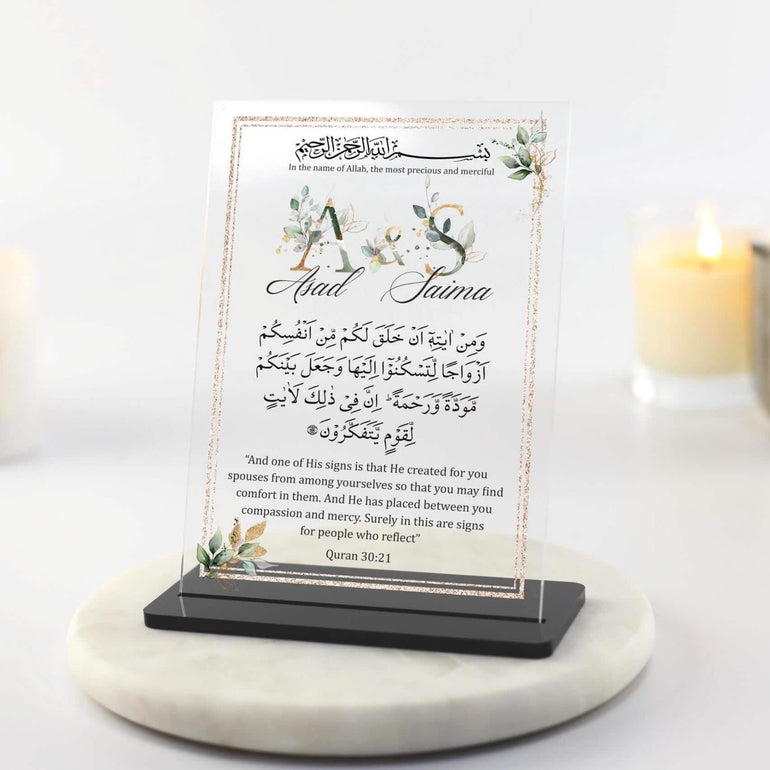 بسم الله الرحمن الرحيم
In the name of Allah, the most precious and merciful
A & S
Asad Saima
وَمِنْ اٰيٰتِهٖٓ اَنْ خَلَقَ لَكُمْ مِّنْ اَنْفُسِكُمْ
اَزْوَاجًا لِّتَسْكُنُوْٓا اِلَيْهَا وَجَعَلَ بَيْنَكُمْ
مَّوَدَّةً وَّرَحْمَةً ؕ اِنَّ فِيْ ذٰلِكَ لَاٰيٰتٍ
لِّقَوْمٍ يَّتَفَكَّرُوْنَ
“And one of His signs is that He created for you
spouses from among yourselves so that you may find
comfort in them. And He has placed between you
compassion and mercy. Surely in this are signs
for people who reflect”
Quran 30:21